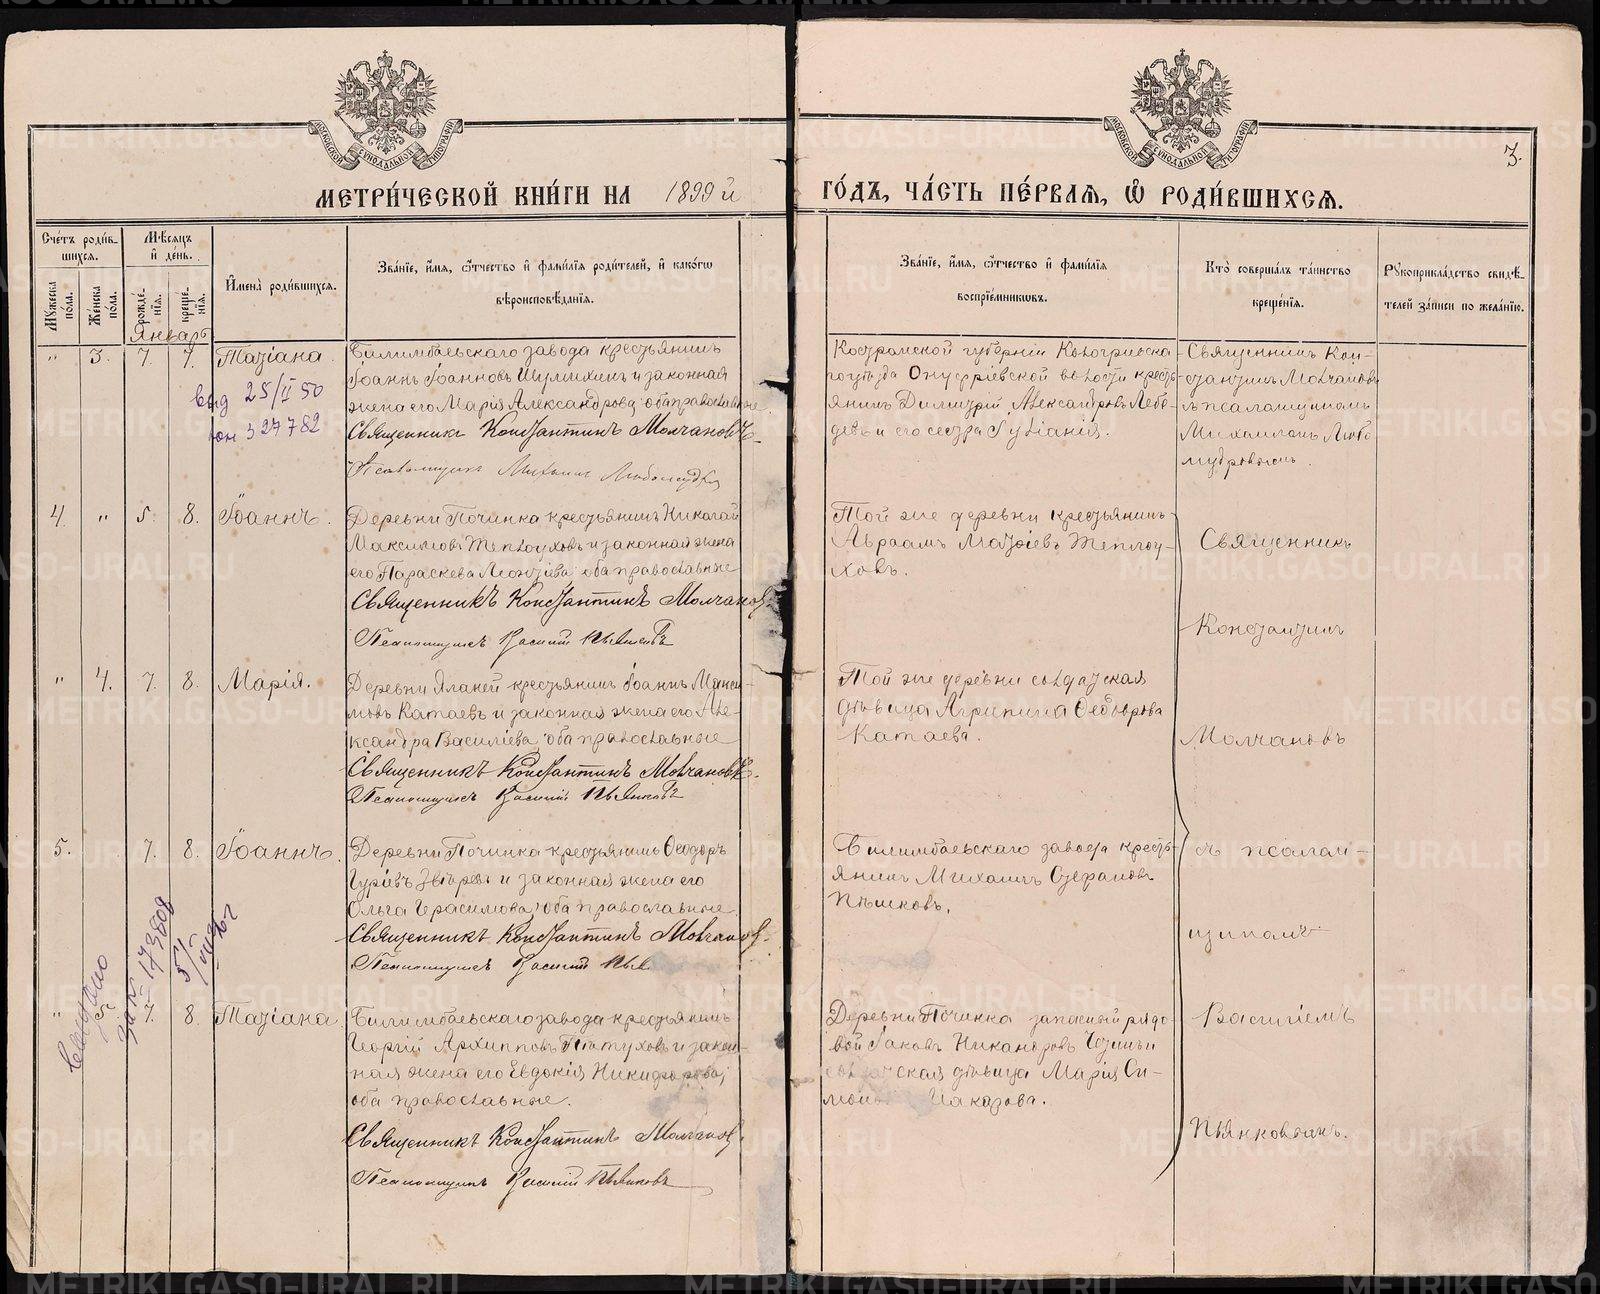 МОСКОВСКОЙ СѴНОДАЛЬНОЙ ТИПОГРАФІИ
МОСКОВСКОЙ СѴНОДАЛЬНОЙ ТИПОГРАФІИ
3.
МЕТРИ́ЧЕСКОЙ КНИ́ГИ НА 1899 й
ГО́ДЪ, ЧА́СТЬ ПЕ́РВАЯ, Ѡ҆ РОДИ́ВШИХСЯ.
Сче́тъ роди́в-
шихся.
Му́жеска по́ла.
Же́нска по́ла.
Мѣ́сяцъ
и҆ де́нь.
рожде́-
нїя.
креще́-
нїя.
Январь
И҆мена̀ роди́вшихся.
Зва́нїе, и҆́мя, ѻ҆́тчество и҆ фами́лїя роди́телей, и҆ како́гѡ
вѣроисповѣ́данїя.
Зва́нїе, и҆́мя, ѻ҆́тчество и҆ фами́лїя
воспрїе́мниковъ.
Кто̀ соверша́лъ та́инство
креще́нїя.
Рꙋкоприкла́дство свидѣ́-
телей за́писи по жела́нїю.
" 3. 7. 7. Татіана.
Билимбаевскаго завода крестьянинъ
Іоаннъ Іоанновъ Шулихинъ и законная
жена его Марія Александрова оба православные
Священникъ Константинъ Молчановъ
Псаломщикъ Михаилъ Любомудровъ
выд 25/II 50
327782
Костромской губерніи Кологривска-
го уѣзда Онуфріевской волости кресть-
янинъ Димитрій Александровъ Лебе-
девъ и его сестра Іуліанія.
Священникъ Кон-
стантинъ Молчановъ
съ псаломщикомъ
Михаиломъ Любо-
мудровымъ.
4. " 5. 8. Іоаннъ.
Деревни Починка крестьянинъ Николай
Максимовъ Теплоуховъ и законная жена
его Параскева Леонтіева оба православные
Священникъ Константинъ Молчановъ
Псаломщикъ Василій Пьянковъ
Той же деревни крестьянинъ
Авраамъ Матѳіевъ Теплоу-
ховъ.
Священникъ
Константинъ
" 4. 7. 8. Марія.
Деревни Яланей крестьянинъ Іоаннъ Макси-
мовъ Катаевъ и законная жена его Але-
ксандра Василіева, оба православные
Священникъ Константинъ Молчановъ.
Псаломщикъ Василій Пьянковъ
Той же деревни солдатская
дѣвица Агрипина Ѳеодорова
Катаева.
Молчановъ
5. 7. 8. Іоаннъ.
Деревни Починка крестьянинъ Ѳеодоръ
Гурьевъ Звѣревъ и законная жена его
Ольга Герасимова, оба православные
Священникъ Константинъ Молчановъ.
Псаломщикъ Василій Пья
Билимбаевскаго завода кресть-
янинъ Михаилъ Стефановъ
Пѣшковъ.
съ псалом-
щикомъ
" 5. 7. 8. Татіана
Билимбаевскаго завода крестьянинъ
Георгій Архипповъ Пѣтуховъ и закон-
ная жена его Евдокія Никифорова,
оба православные.
Священникъ Константинъ Молчановъ.
Псаломщикъ Василій Пьянковъ
Деревни Починка запасный рядо-
вой Іаковъ Никаноровъ и
солдатская дѣвица Марія Си-
Макарова.
Василіемъ
Пьянковымъ.
173808